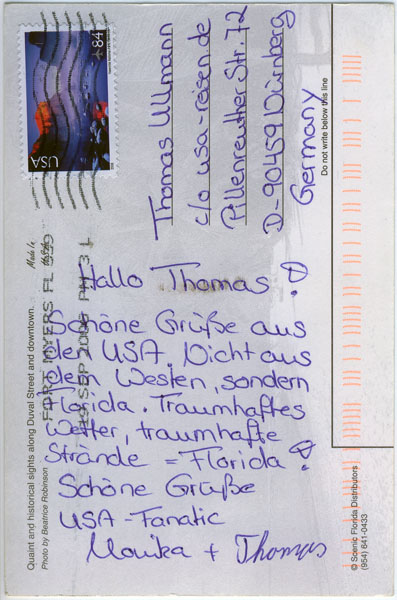 84
USA
Thomas Ullmann
c/o usa-reisen.de
Pillenreuther Str. 72
D-90459 Nürnberg
Germany
Do not write below this line
FORT MYERS FL
SEP 2006 PM 3 L
Hallo Thomas!
Schöne Grüße aus
den USA. Nicht aus
dem Westen, sondern
Florida. Traumhaftes
Wetter, traumhafte
Strände = Florida!
Schöne Grüße
USA-Fanatic
Monika + Thomas
Quaint and historical sights along Duval Street and downtown.
Photo by Beatrice Robinson
© Scenic Florida Distributors
(954) 641-0433